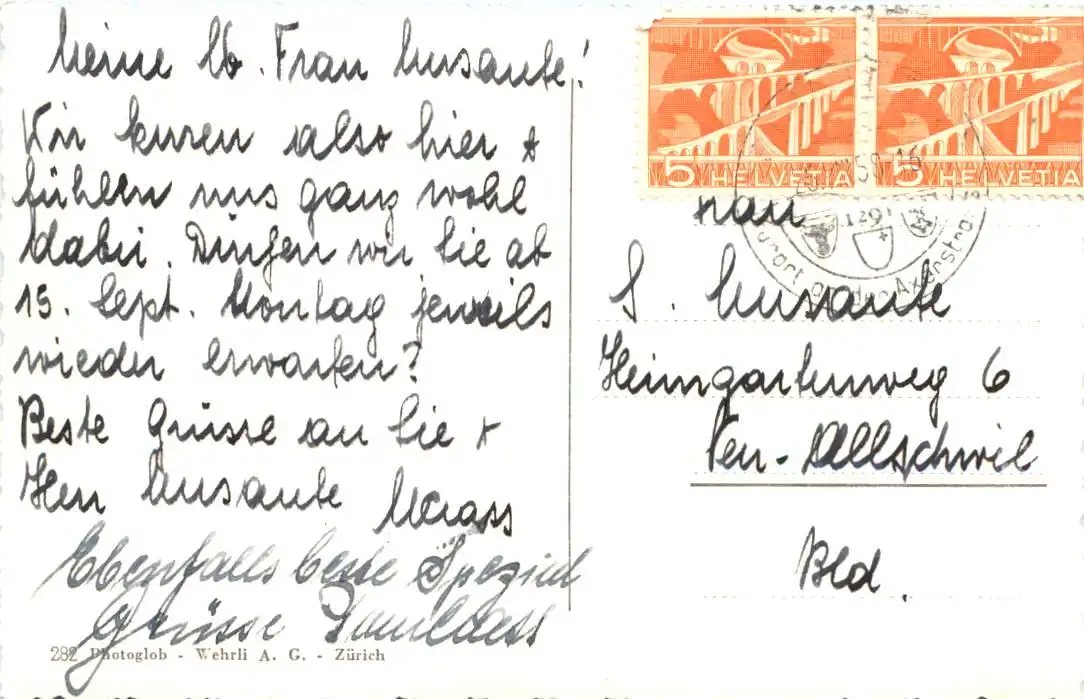 Meine lb. Frau Musante!
Wir kuren also hier +
fühlen uns ganz wohl
dabei. Dürfen wir Sie ab
15. Sept. Montag jeweils
wieder erwarten?
Beste Grüsse an Sie +
Herr Musante
Ebenfalls beste Spezial
Grüsse
282 Photoglob - Wehrli A. G. - Zürich
5 HELVETIA
5 HELVETIA
1291
Kurort an der Axenstrasse
Frau
S. Musante
Heimgartenweg 6
Neu-Allschwil
Bld.